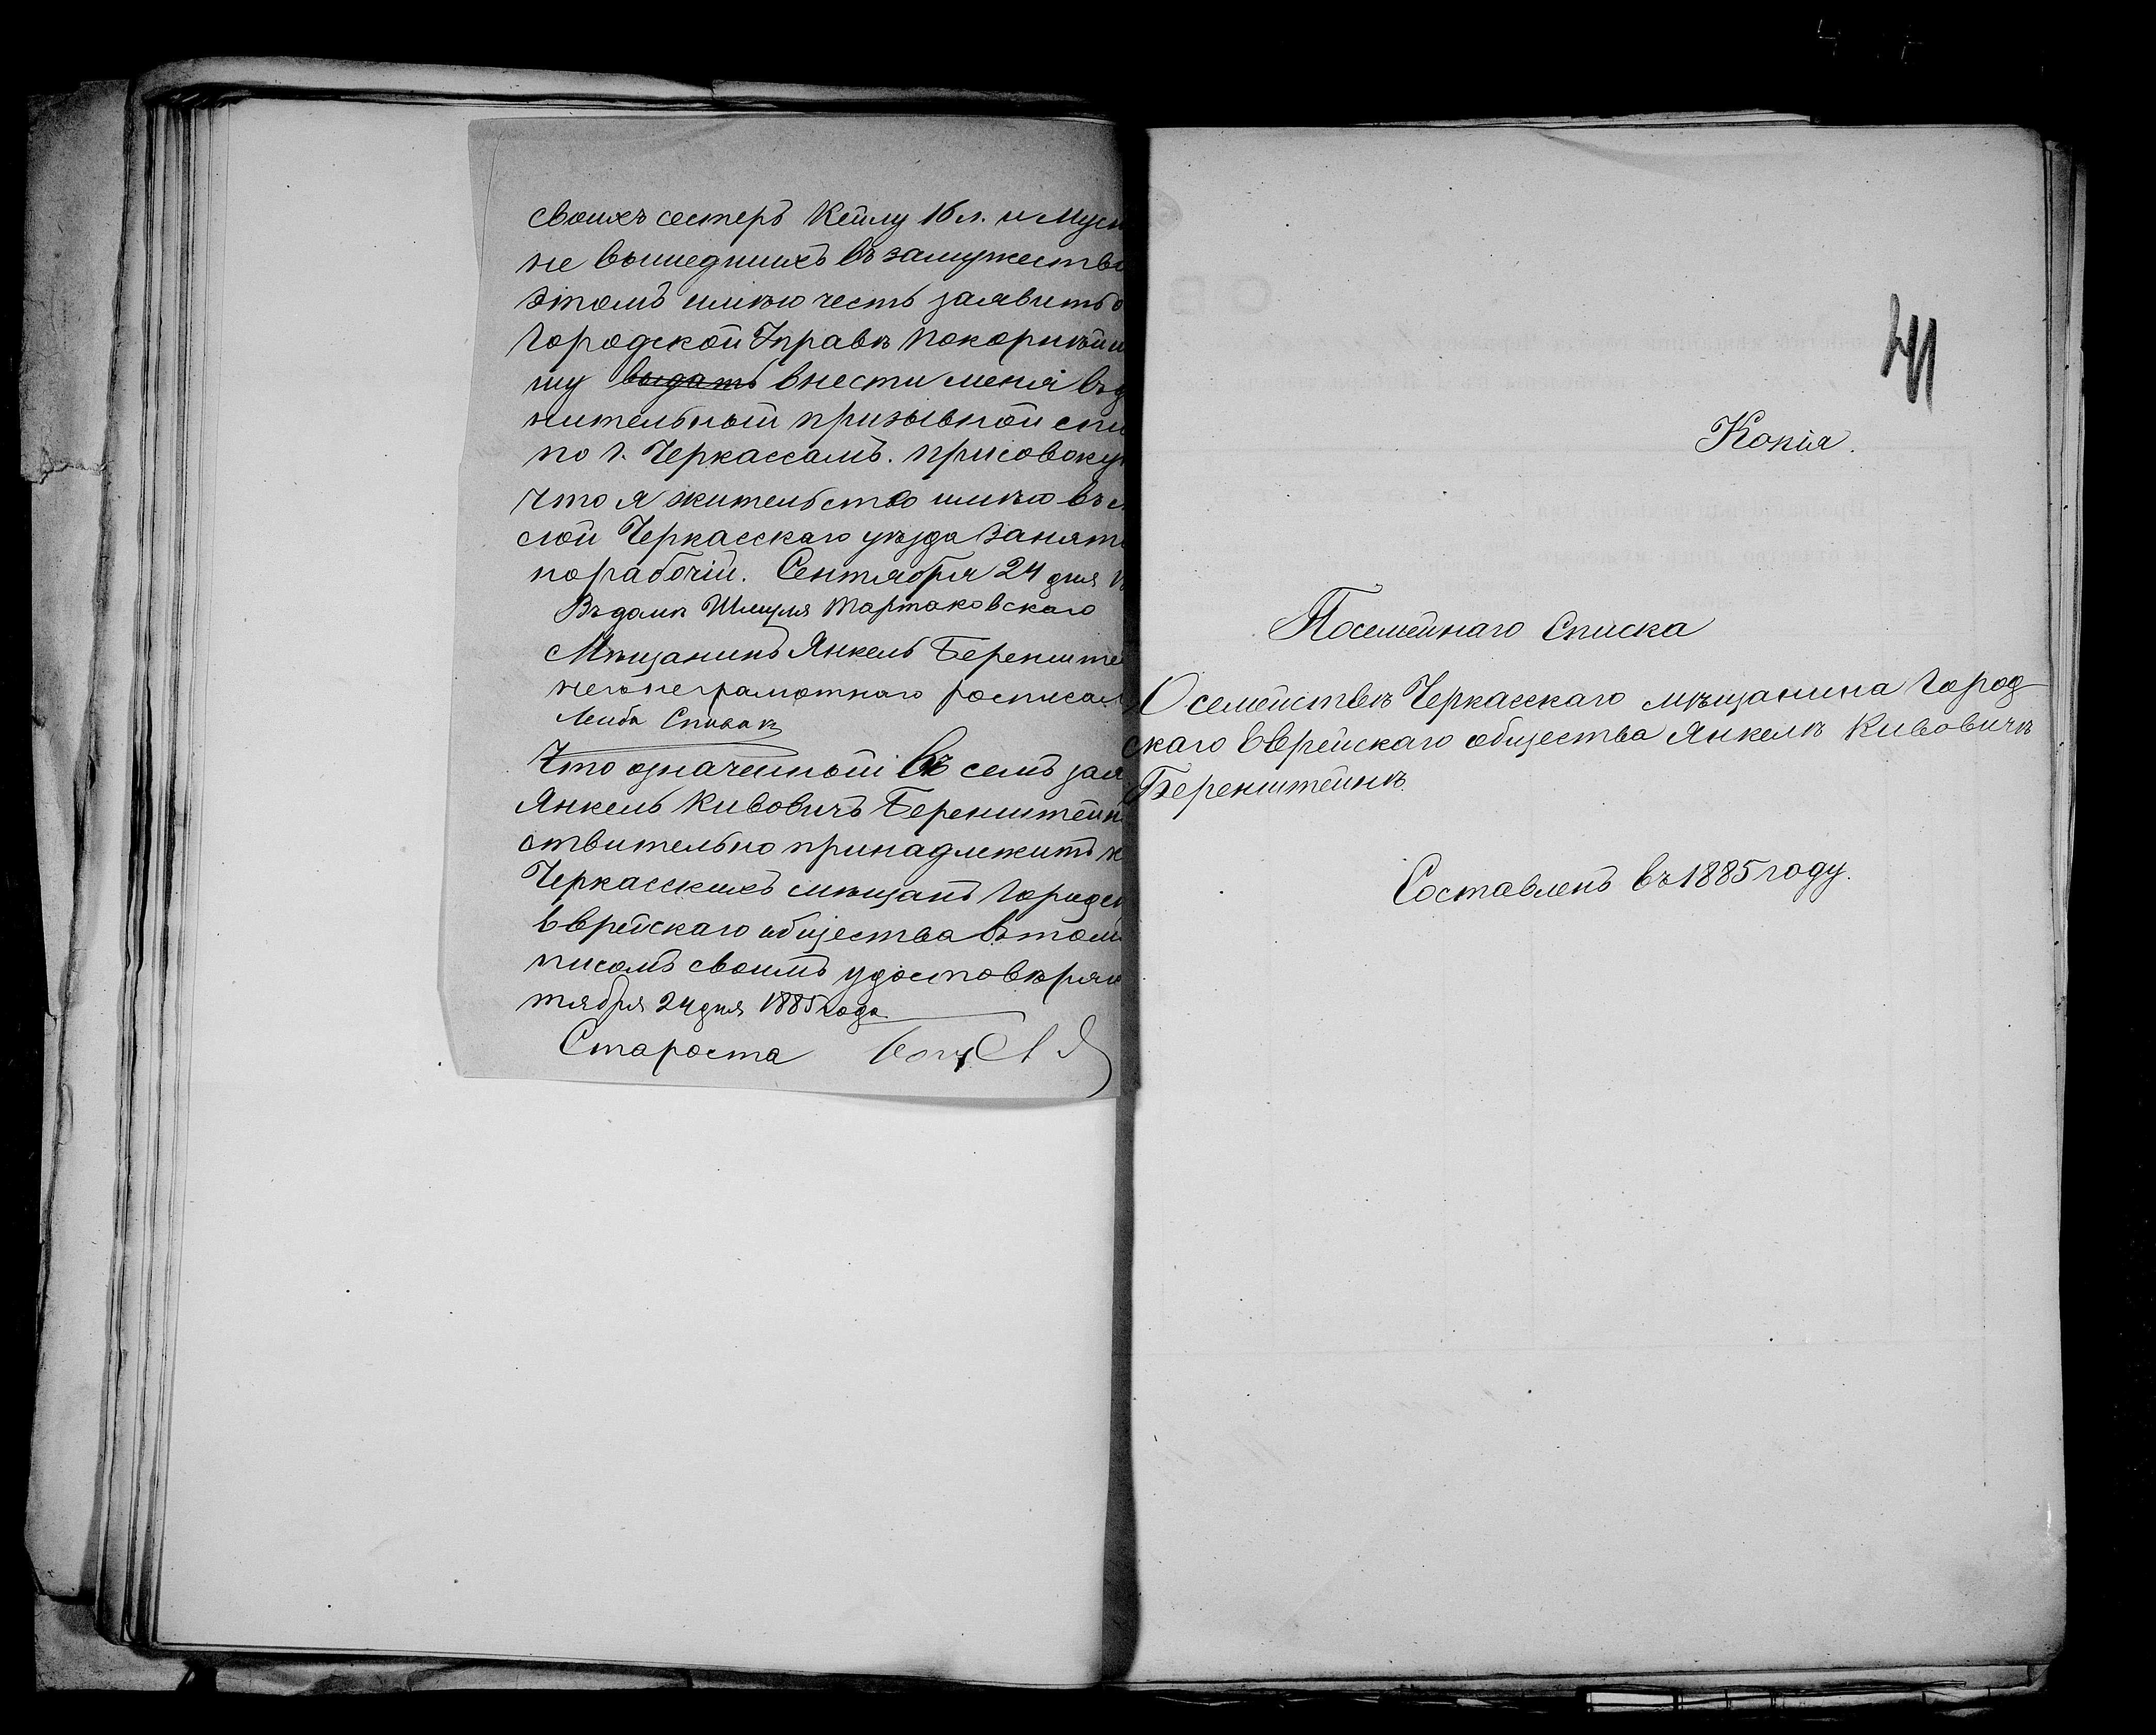 своихъ сестеръ Кейлу 16 л. и Мусю
не вышедшихъ въ замужество
этомъ имѣю честь заявить о
Городской Управѣ покорнѣйш
шу выдать внести меня въ д
нительный призывной спи
по г. Черкассамъ. присовоку
что я жительство имѣю въ м
слой Черкасскаго уѣзда Заняті
порабочій. Сентября 24 дня
Въ домѣ Шмуля Тартаковскаго
Мѣщанинъ Янкель Беренште
него неграмотнаго росписал
Лейба Спивакъ
Что означенный въ семъ зая
Янкель Кивовичъ Беренштейн
ствительно принадлежитъ к
Черкасскихъ мѣщанъ Городск
Еврейскаго общества въ том
писомъ своимъ удостовѣряю
тября 24 дня 1885 года
Староста
41
Копія.
Посемейнаго Списка
О семействѣ Черкасскаго мѣщанина Город
скаго Еврейскаго общества Янкелѣ Кивовичѣ
Беренштейнѣ.
Составленъ въ 1885 году.